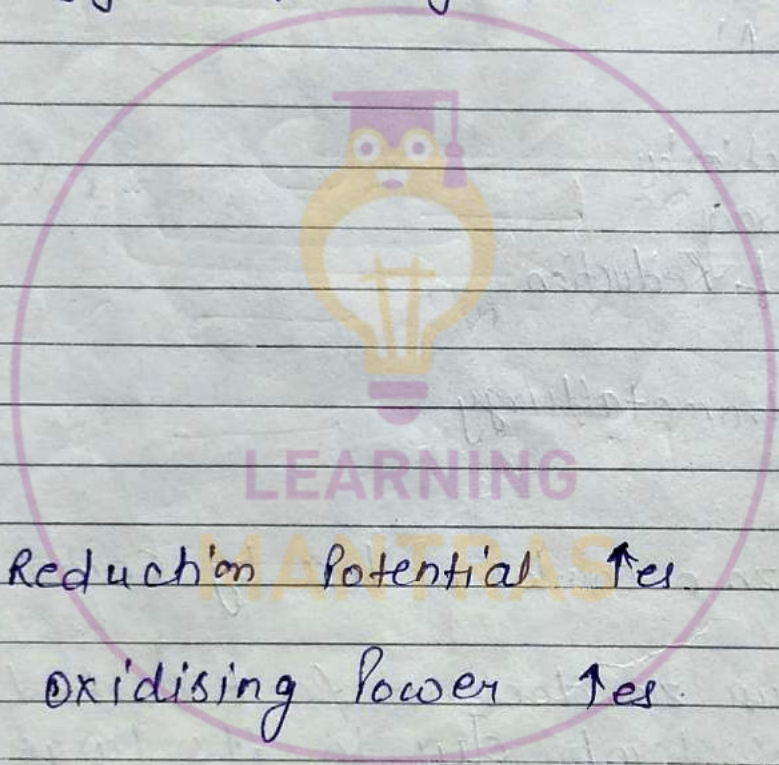 LEARNING
MANTRAS
Reduction Potential ↑es
Oxidising Power ↑es.